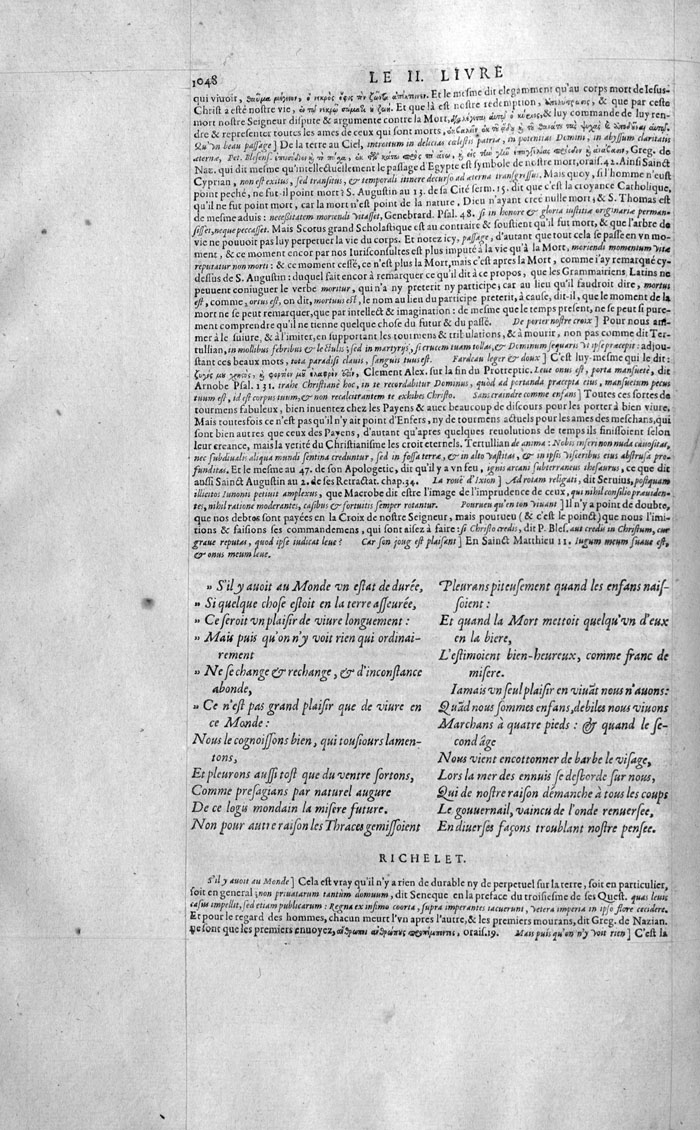 1048
LE II. LIVRE
qui vivoit, ὁ νεκρὸς ὄφις τὸν ζῶντα Et le mesme dit elegamment qu'au corps mort de Iesus-
Christ a esté nostre vie, Et que là est nostre redemption, & que par ceste
mort nostre Seigneur dispute & argumente contre la Mort, & luy commande de luy ren-
dre & representer toutes les ames de ceux qui sont morts,
Qu'vn beau passage] De la terre au Ciel, introitum in delicias cælestis patriæ, in potentias Domini, in abyssum claritatis
æternæ, Pet. Blesens. Greg. de
Naz. qui dit mesme qu'intellectuellement le passage d'Egypte est symbole de nostre mort, orais. 42. Ainsi Sainct
Cyprian, non est exitus, sed transitus, & temporali itinere decurso ad æterna transgressus. Mais quoy, si l'homme n'eust
point peché, ne fut-il point mort? S. Augustin au 13. de sa Cité serm. 15. dit que c'est la croyance Catholique,
qu'il ne fut point mort, car la mort n'est point de la nature, Dieu n'ayant creé nulle mort; & S. Thomas est
de mesme aduis: necessitatem moriendi vitasset, Genebrard. Psal. 48. si in honore & gloria iustitiæ originariæ perman-
sisset, neque peccasset. Mais Scotus grand Scholastique est au contraire & soustient qu'il fut mort, & que l'arbre de
vie ne pouuoit pas luy perpetuer la vie du corps. Et notez icy, passage, d'autant que tout cela se passe en vn mo-
ment, & ce moment encor par nos Iurisconsultes est plus imputé à la vie qu'à la Mort, moriendi momentum vitæ
reputatur non morti: & ce moment cessé, ce n'est plus la Mort, mais c'est apres la Mort, comme i'ay remarqué cy-
dessus de S. Augustin: duquel fait encor à remarquer ce qu'il dit à ce propos, que les Grammairiens Latins ne
peuuent coniuguer le verbe moritur, qui n'a ny preterit ny participe; car au lieu qu'il faudroit dire, mortus
est, comme, ortus est, on dit, mortuus est, le nom au lieu du participe preterit, à cause, dit-il, que le moment de la
mort ne se peut remarquer, que par intellect & imagination: de mesme que le temps present, ne se peut si pure-
ment comprendre qu'il ne tienne quelque chose du futur & du passé. De porter nostre croix] Pour nous ani-
mer à le suiure, & à l'imiter, en supportant les tourmens & tribulations, & à mourir, non pas comme dit Ter-
tullian, in mollibus febribus & lectulis; sed in martyrijs, si crucem tuam tollas, & Dominum sequaris vt ipse præcepit: adjou-
stant ces beaux mots, tota paradisi clauis, sanguis tuus est. Fardeau leger & doux] C'est luy-mesme qui le dit:
Clement Alex. sur la fin du Protreptic. Leue onus est, porta mansuetè, dit
Arnobe Psal. 131. trahe Christianè hoc, in te recordabitur Dominus, quòd ad portanda præcepta eius, mansuetum pecus
tuum est, id est corpus tuum, & non recalcitrantem te exhibes Christo. Sans craindre comme enfans] Toutes ces sortes de
tourmens fabuleux, bien inuentez chez les Payens & auec beaucoup de discours pour les porter à bien viure.
Mais toutesfois ce n'est pas qu'il n'y ait point d'Enfers, ny de tourmens actuels pour les ames des meschans, qui
sont bien autres que ceux des Payens, d'autant qu'apres quelques reuolutions de temps ils finissoient selon
leur creance, mais la verité du Christianisme les croit eternels. Tertullian de anima: Nobis inferi non nuda cauositas,
nec subdiualis aliqua mundi sentina creduntur, sed in fossa terræ, & in alto vastitas, & in ipsis visceribus eius abstrusa pro-
funditas. Et le mesme au 47. de son Apologetic, dit qu'il y a vn feu, ignis arcani subterraneus thesaurus, ce que dit
aussi Sainct Augustin au 2. de ses Retractat. chap. 34. La rouë d'Ixion] Ad rotam religati, dit Seruius, postquam
illicitos Iunonis petiuit amplexus, que Macrobe dit estre l'image de l'imprudence de ceux, qui nihil consilio præuiden-
tes, nihil ratione moderantes, casibus & fortuitis semper rotantur. Pourueu qu'en ton viuant] Il n'y a point de doubte,
que nos debtes sont payées en la Croix de nostre Seigneur, mais pourueu (& c'est le poinct) que nous l'imi-
tions & faisions ses commandemens, qui sont aisez à faire: si Christo credis, dit P. Bles. aut credis in Christum, cur
graue reputas, quod ipse iudicat leue? Car son joug est plaisant] En Sainct Matthieu 11. Iugum meum suaue est,
& onus meum leue.
» S'il y auoit au Monde vn estat de durée,
» Si quelque chose estoit en la terre asseurée,
» Ce seroit vn plaisir de viure longuement:
» Mais puis qu'on n'y voit rien qui ordinai-
rement
» Ne se change & rechange, & d'inconstance
abonde,
» Ce n'est pas grand plaisir que de viure en
ce Monde:
Nous le cognoissons bien, qui tousiours lamen-
tons,
Et pleurons aussi tost que du ventre sortons,
Comme presagians par naturel augure
De ce logis mondain la misere future.
Non pour autre raison les Thraces gemissoient
Pleurans piteusement quand les enfans nais-
soient:
Et quand la Mort mettoit quelqu'vn d'eux
en la biere,
L'estimoient bien-heureux, comme franc de
misere.
Iamais vn seul plaisir en viuãt nous n'auons:
Quãd nous sommes enfans, debiles nous viuons
Marchans à quatre pieds: & quand le se-
cond âge
Nous vient encottonner de barbe le visage,
Lors la mer des ennuis se desborde sur nous,
Qui de nostre raison démanche à tous les coups
Le gouuernail, vaincu de l'onde renuersee,
En diuerses façons troublant nostre pensee.
RICHELET.
S'il y auoit au Monde] Cela est vray qu'il n'y a rien de durable ny de perpetuel sur la terre, soit en particulier,
soit en general; non priuatarum tantùm domuum, dit Seneque en la preface du troisiesme de ses Quest. quas leuis
casus impellit, sed etiam publicarum: Regna ex infimo coorta, supra imperantes iacuerunt, vetera imperia in ipso flore cecidere.
Et pour le regard des hommes, chacun meurt l'vn apres l'autre, & les premiers mourans, dit Greg. de Nazian.
ne sont que les premiers enuoyez, orais. 19. Mais puis qu'on n'y voit rien] C'est la